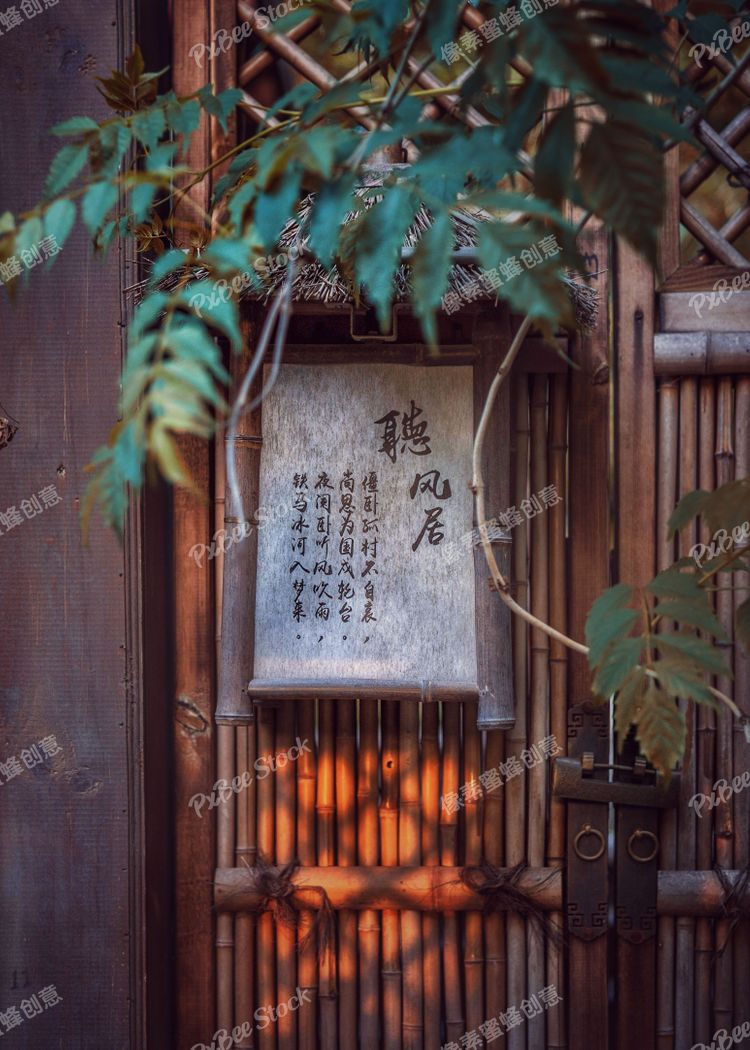 聽风居
僵卧孤村不自哀，
尚思为国戍轮台。
夜阑卧听风吹雨，
铁马冰河入梦来。
PxBee Stock
像素蜜蜂创意